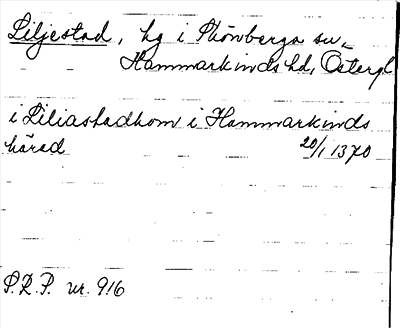 Liljestad, hg i Skönberga sn,
Hammarkinds hd, Östergl
i Liliastadhom i Hammarkinds
härad 20/1 1370
S.R.P. nr. 916